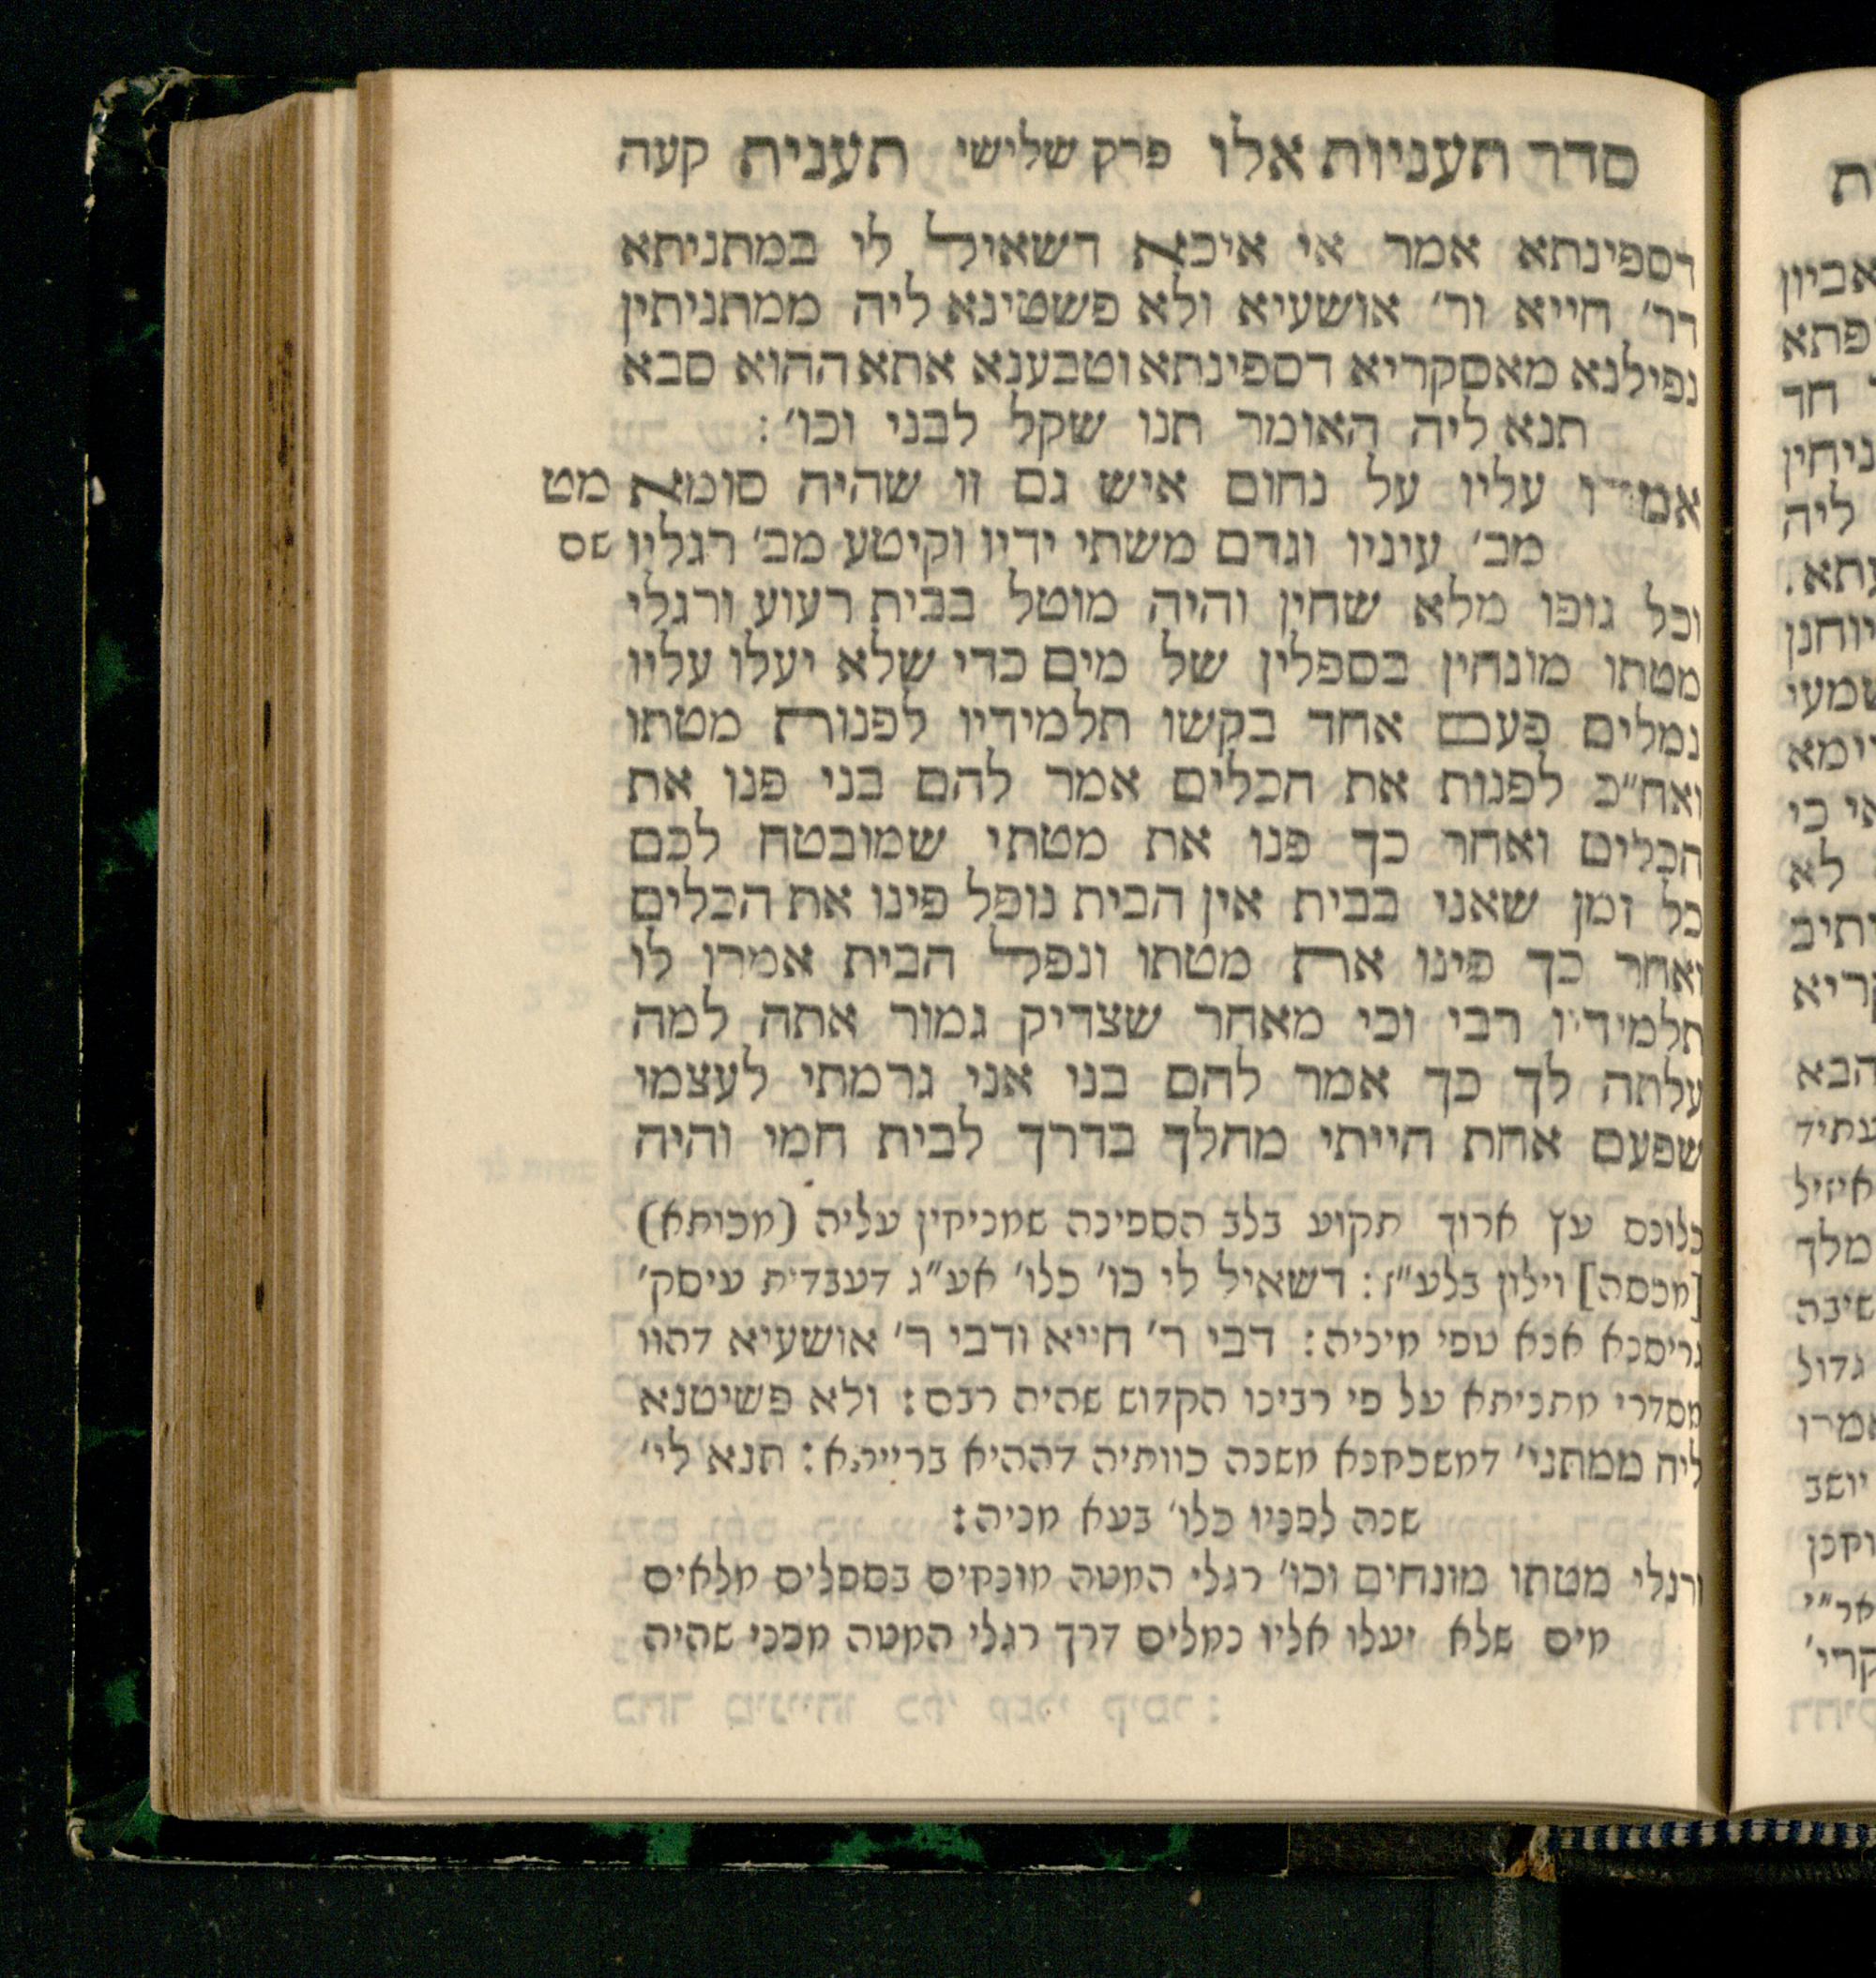 סדר תעניות אלו פרק שלישי תענית קעה
דספינתא אמר אי איכא דשאיל לי במתניתא
דר׳ חייא ור׳ אושעיא ולא פשטינא ליה ממתניתין
נפילנא מאסקריא דספינתא וטבענא אתא ההוא סבא
תנא ליה האומר תנו שקל לבני וכו׳ :
אמרו עליו על נחום איש גם זו שהיה סומא מט
מב׳ עיניו וגדם משתי ידיו וקיטע מב׳ רגליו שם
וכל גופו מלא שחין והיה מוטל בבית רעוע ורגלי
מטתו מונחין בספלין של מים כדי שלא יעלו עליו
נמלים פעם אחד בקשו תלמידיו לפנות מטתו
ואח״כ לפנות את הכלים אמר להם בני פנו את
הכלים ואחר כך פנו את מטתי שמובטח לכם
כל זמן שאני בבית אין הבית נופל פינו את הכלים
ואחר כך פינו את מטתו ונפל הבית אמרו לו
תלמידיו רבי וכי מאחר שצדיק גמור אתה למה
עלתה לך כך אמר להם בנו אני גרמתי לעצמו
שפעם אחת הייתי מהלך בדרך לבית חמי והיה
כלונס עץ ארוך תקוע בלב הספינה שמניחין עליה (מכותא)
[מכסה] וילון בלע״ז : דשאיל לי כו׳ כלו׳ אע״ג דעבדית עיסק׳
גריסנא אנא טפי מיניה : דבי ר׳ חייא ודבי ר׳ אושעיא דהוו
מסדרי מתניתא על פי רבינו הקדוש שהיה רבם : ולא פשיטנא
ליה ממתני׳ דמשכחנא משנה כוותיה דההיא ברייתא : תנא לי׳
שנה לפניו כלו׳ בעא מניה :
ורגלי מטתו מונחים וכו׳ רגלי המטה מונחים בספלים מלאים
מים שלא יעלו אליו נמלים דרך רגלי המטה מפני שהיה